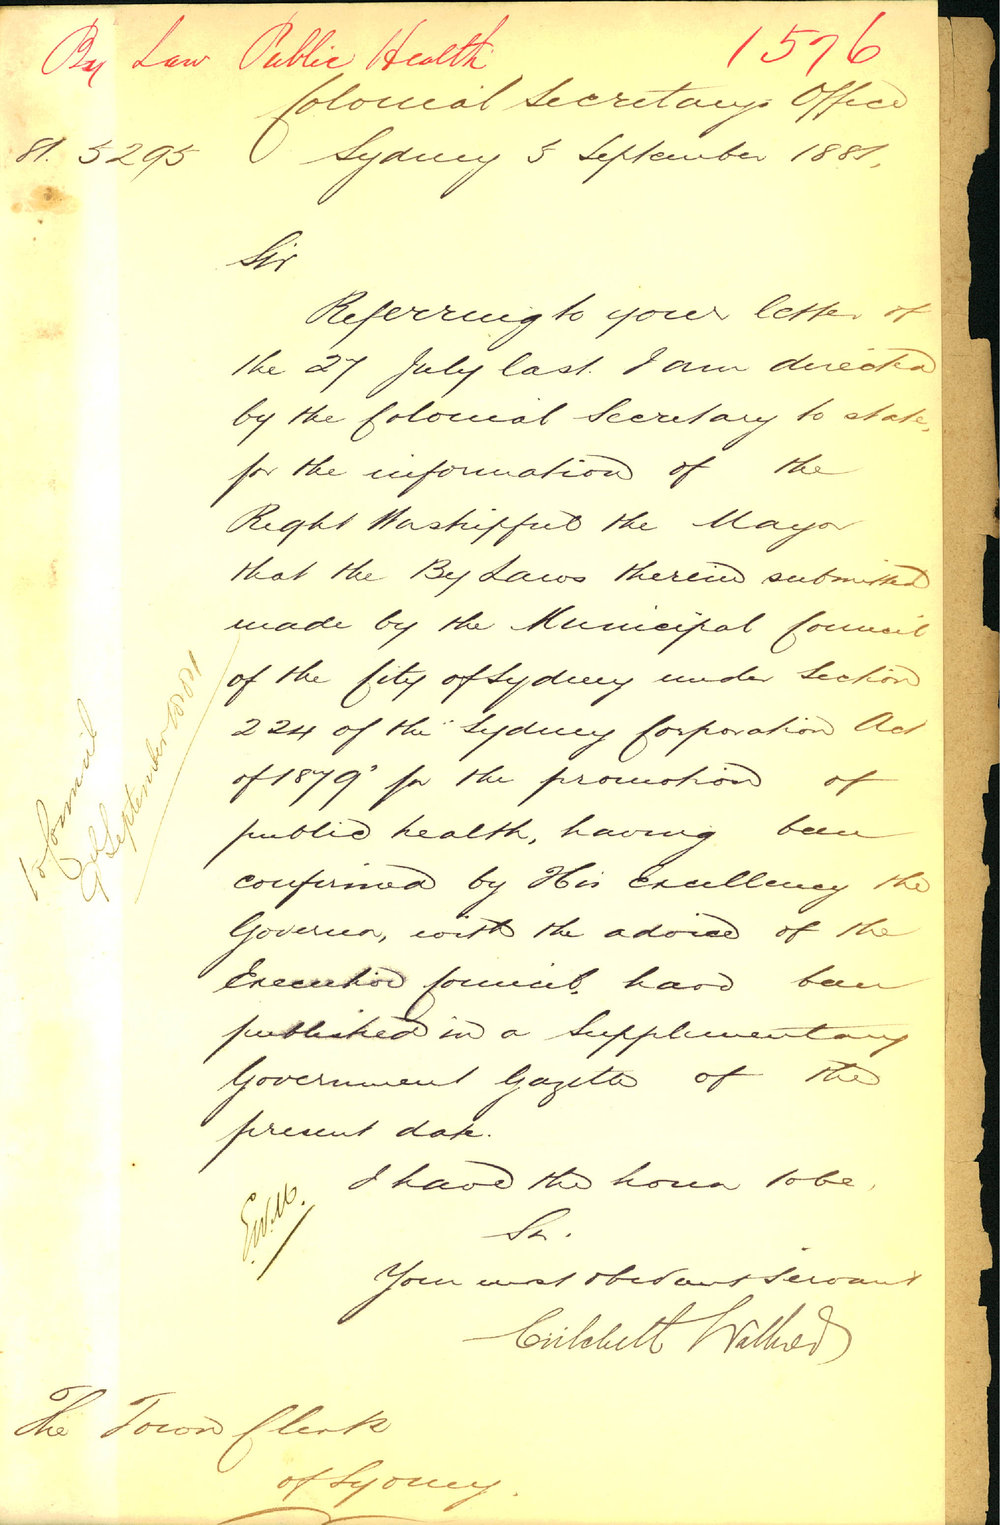 By Law Public Health 1576
Colonial Secretarys Office
81. 5295 Sydney 5 September 1881,
Sir
Referring to your letter of
the 27 July last. I am directed
by the Colonial Secretary to state,
for the information of the
Right Worshipful the Mayor
that the By Laws therein submitted
made by the Municipal Council
of the City of Sydney under Section
224 of the "Sydney Corporation Act
of 1879" for the promotion of
public health, having been
confirmed by His Excellency the
Governor, with the advice of the
Executive Council, have been
published in a Supplementary
Government Gazette of the
present date.
I have the honor to be,
Sir.
Your most obedient Servant
Critchett Walker
To Council
9 September 1881
E.W.M.
The Town Clerk
of Sydney.